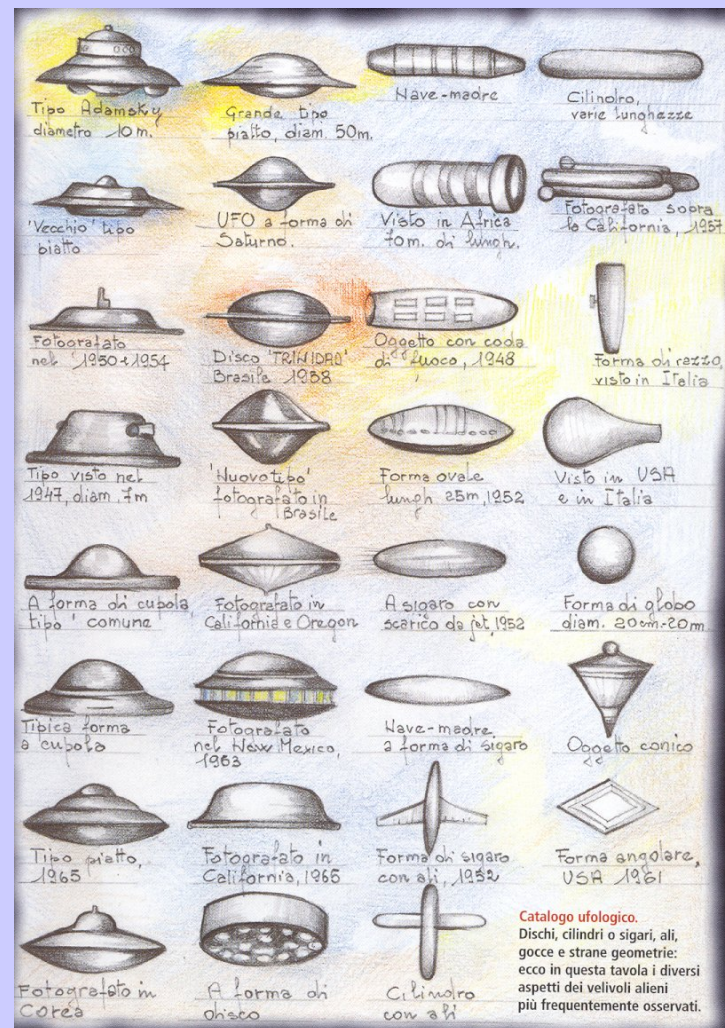 Tipo Adamsky
diametro 10 m.
Grande tipo
piatto, diam. 50m.
Nave-madre
Cilindro,
varie lunghezze
'Vecchio' tipo
piatto
UFO a forma di
Saturno.
Visto in Africa
70m. di lungh.
Fotografato sopra
la California, 1957
Fotografato
nel '1950 e 1954
Disco 'TRINIDAD'
Brasile 1958
Oggetto con coda
di fuoco, 1948
Forma di razzo,
visto in Italia
Tipo visto nel
1947, diam. 7m
'Nuovo tipo'
fotografato in
Brasile
Forma ovale
lungh 25m, 1952
Visto in USA
e in Italia
A forma di cupola
tipo' comune
Fotografato in
California e Oregon
A sigaro con
scarico da jet, 1952
Forma di globo
diam. 20cm-20m
Tipica forma
a cupola
Fotografato
nel New Mexico,
1963
Nave-madre
a forma di sigaro
Oggetto conico
Tipo piatto,
1965
Fotografato in
California, 1965
Forma di sigaro
con ali, 1952
Forma angolare,
USA 1961
Fotografato in
Corea
A forma di
disco
Cilindro
con ali
Catalogo ufologico.
Dischi, cilindri o sigari, ali,
gocce e strane geometrie:
ecco in questa tavola i diversi
aspetti dei velivoli alieni
più frequentemente osservati.